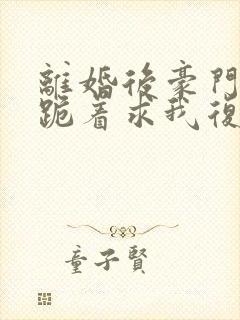 離婚後豪門
跪着求我復
童子賢